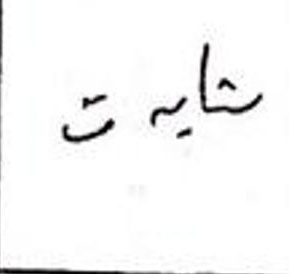 شایەت